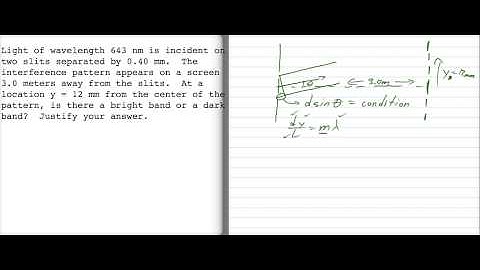 Light of wavelength 643 nm is incident on
two slits separated by 0.40 mm. The
interference pattern appears on a screen
3.0 meters away from the slits. At a
location y = 12 mm from the center of the
pattern, is there a bright band or a dark
band? Justify your answer.
θ
3.0m
d sin θ = condition
dy/L = mλ